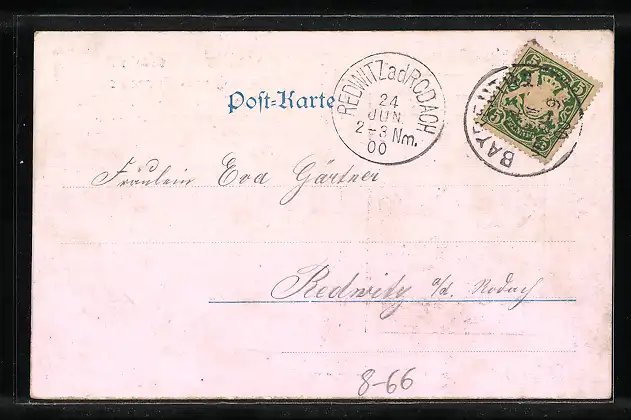 Post-Karte
REDWITZ a/d RODACH
24
JUN.
2-3 Nm.
00
BAYREUTH
5 5
5 5
Fräulein Eva Gärtner
Redwitz a/d. Rodach
8-66